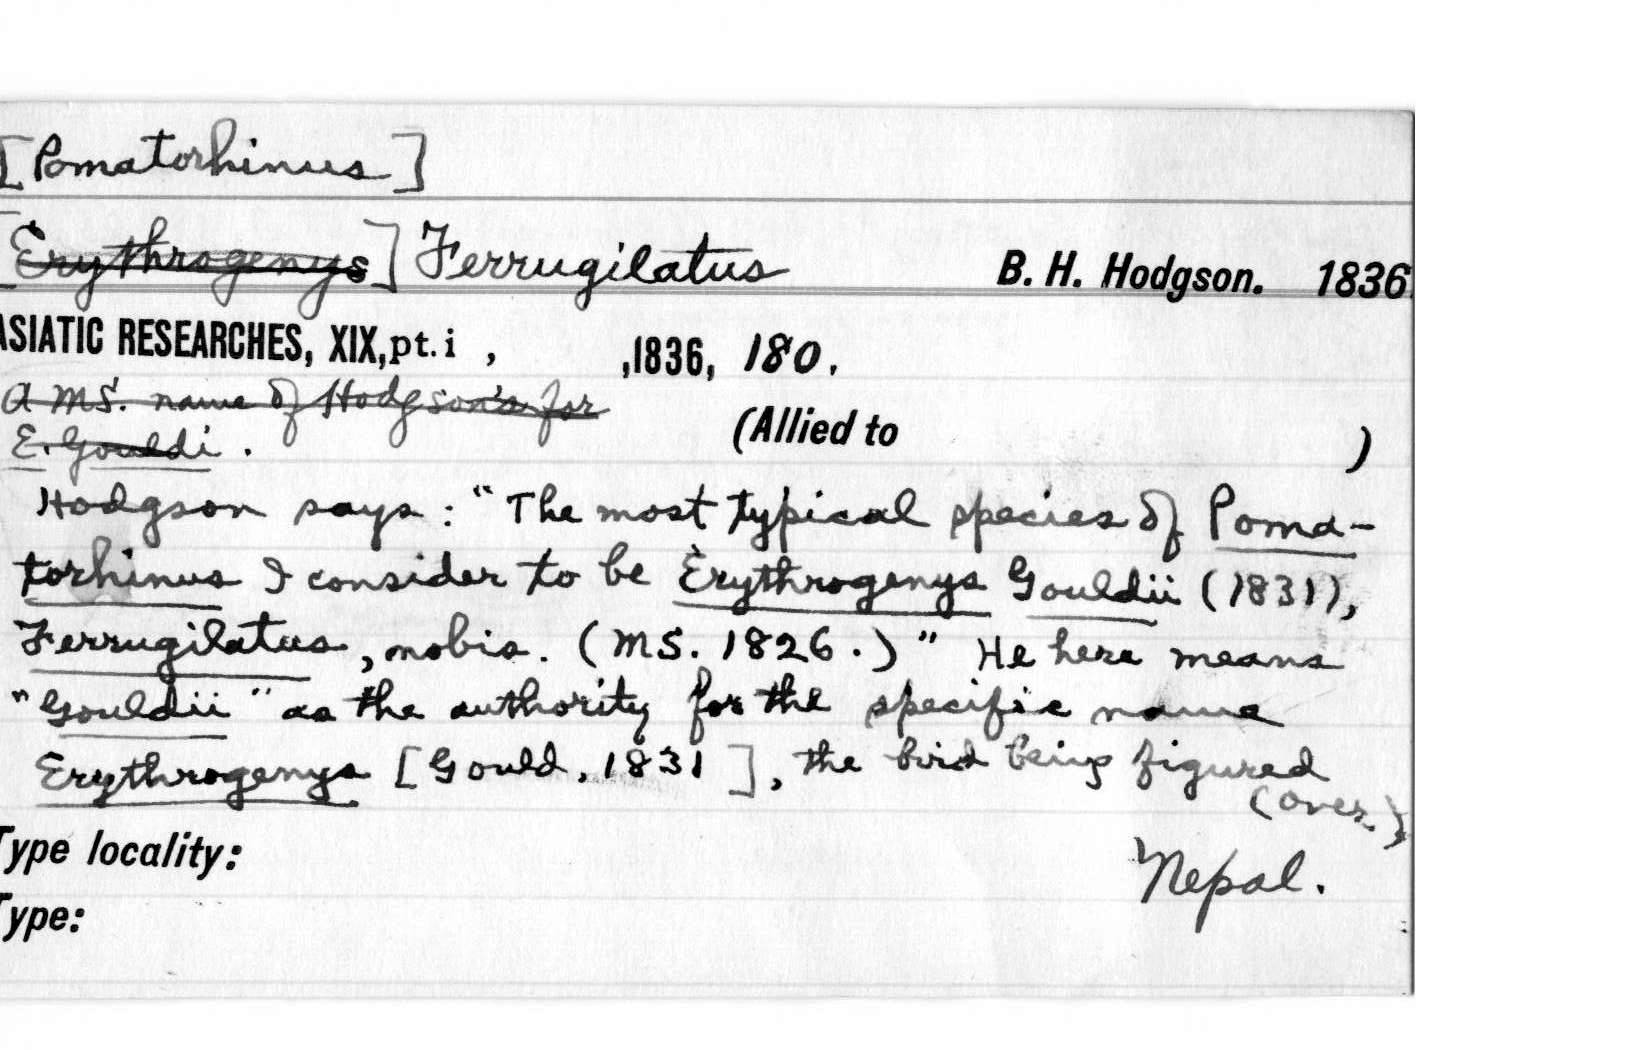 [Pomatorhinus]
[Erythrogenys] Ferrugilatus B. H. Hodgson. 1836.
ASIATIC RESEARCHES, XIX, pt. i , ,1836, 180.
A MS. name of Hodgson's for
E. Gouldi .
(Allied to )
Hodgson says : "The most typical species of Poma-
torhinus I consider to be Erythrogenys Gouldii (1831),
Ferrugilatus, nobis. (MS. 1826.)" He here means
"Gouldii" as the authority for the specific name
Erythrogenys [Gould, 1831], the bird being figured
(over.)
Type locality: Nepal.
Type: